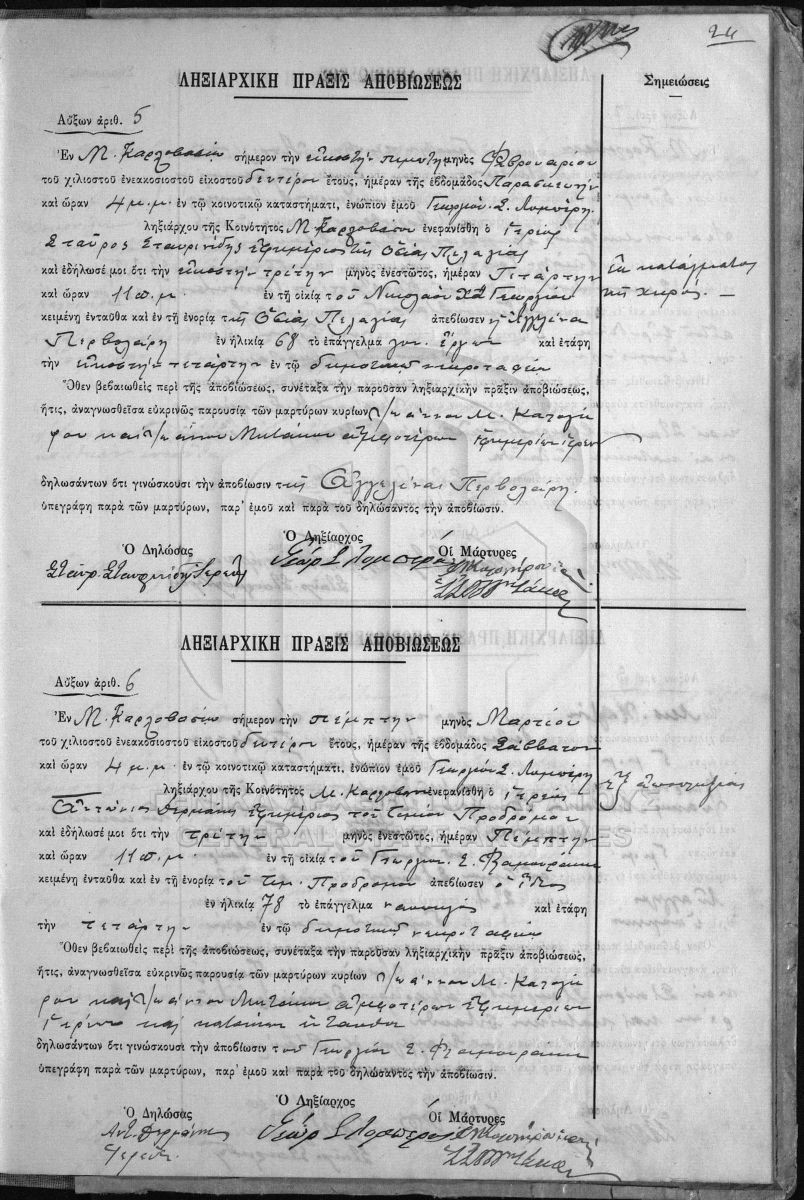 24
ΛΗΞΙΑΡΧΙΚΗ ΠΡΑΞΙΣ ΑΠΟΒΙΩΣΕΩΣ
Σημειώσεις
Αὔξων ἀριθ. 5
Ἐν Μ. Καρλοβασίῳ σήμερον τὴν εἰκοστὴν πέμπτην μηνὸς Φεβρουαρίου
τοῦ χιλιοστοῦ ἐνεακοσιοστοῦ εἰκοστοῦ δευτέρου ἔτους, ἡμέραν τῆς ἑβδομάδος Παρασκευὴν
καὶ ὥραν 4 μ.μ. ἐν τῷ κοινοτικῷ καταστήματι, ἐνώπιον ἐμοῦ Γεωργίου Σ. Λυμπέρη
ληξιάρχου τῆς Κοινότητος Μ. Καρλοβασίου ἐνεφανίσθη ὁ ἱερεὺς
Σταῦρος Σταυρινίδης ἐφημέριος τῆς Ὁσίας Πελαγίας
καὶ ἐδήλωσέ μοι ὅτι τὴν εἰκοστὴν τρίτην μηνὸς ἐνεστῶτος, ἡμέραν Τετάρτην
καὶ ὥραν 11 π.μ. ἐν τῇ οἰκίᾳ τοῦ Νικολάου Χ" Γεωργίου
κειμένῃ ἐνταῦθα καὶ ἐν τῇ ἐνορίᾳ τῆς Ὁσίας Πελαγίας ἀπεβίωσεν ἡ Ἀγγελίνα
Περβολάρη ἐν ἡλικίᾳ 68 τὸ ἐπάγγελμα καὶ ἐτάφη
τὴν εἰκοστὴν τετάρτην ἐν τῷ δημοτικῷ νεκροταφείῳ
Ὅθεν βεβαιωθεὶς περὶ τῆς ἀποβιώσεως, συνέταξα τὴν παροῦσαν ληξιαρχικὴν πρᾶξιν ἀποβιώσεως,
ἥτις, ἀναγνωσθεῖσα εὐκρινῶς παρουσίᾳ τῶν μαρτύρων κυρίων Ἰωάννου Μ. Καλογή
ρου καὶ Ἰωάννου ἀμφοτέρων ἐφημερίων ἱερέων
δηλωσάντων ὅτι γινώσκουσι τὴν ἀποβίωσιν τῆς Ἀγγελίνας Περβολάρη
ὑπεγράφη παρὰ τῶν μαρτύρων, παρ' ἐμοῦ καὶ παρὰ τοῦ δηλώσαντος τὴν ἀποβίωσιν.
ἐκ κατάγματος
τῆς χειρός.
Ὁ Δηλώσας
Ὁ Ληξίαρχος
Οἱ Μάρτυρες
ΛΗΞΙΑΡΧΙΚΗ ΠΡΑΞΙΣ ΑΠΟΒΙΩΣΕΩΣ
Αὔξων ἀριθ. 6
Ἐν Μ. Καρλοβασίῳ σήμερον τὴν πέμπτην μηνὸς Μαρτίου
τοῦ χιλιοστοῦ ἐνεακοσιοστοῦ εἰκοστοῦ δευτέρου ἔτους, ἡμέραν τῆς ἑβδομάδος Σάββατον
καὶ ὥραν 4 μ.μ. ἐν τῷ κοινοτικῷ καταστήματι, ἐνώπιον ἐμοῦ Γεωργίου Σ. Λυμπέρη
ληξιάρχου τῆς Κοινότητος Μ. Καρλοβασίου ἐνεφανίσθη ὁ ἱερεὺς
Ἀντώνιος Δερμάνης ἐφημέριος τοῦ Τιμίου Προδρόμου
καὶ ἐδήλωσέ μοι ὅτι τὴν τρίτην μηνὸς ἐνεστῶτος, ἡμέραν Πέμπτην
καὶ ὥραν 11 π.μ. ἐν τῇ οἰκίᾳ τοῦ Γεωργίου Σ.
κειμένῃ ἐνταῦθα καὶ ἐν τῇ ἐνορίᾳ τοῦ Τιμ. Προδρόμου ἀπεβίωσεν ὁ ἴδιος
ἐν ἡλικίᾳ 78 τὸ ἐπάγγελμα καὶ ἐτάφη
τὴν τετάρτην ἐν τῷ δημοτικῷ νεκροταφείῳ
Ὅθεν βεβαιωθεὶς περὶ τῆς ἀποβιώσεως, συνέταξα τὴν παροῦσαν ληξιαρχικὴν πρᾶξιν ἀποβιώσεως,
ἥτις, ἀναγνωσθεῖσα εὐκρινῶς παρουσίᾳ τῶν μαρτύρων κυρίων Ἰωάννου Μ. Καλογή
ρου καὶ Ἰωάννου ἀμφοτέρων ἐφημερίων
ἱερέων καὶ κατοίκων ἐνταῦθα
δηλωσάντων ὅτι γινώσκουσι τὴν ἀποβίωσιν τοῦ Γεωργίου Σ.
ὑπεγράφη παρὰ τῶν μαρτύρων, παρ' ἐμοῦ καὶ παρὰ τοῦ δηλώσαντος τὴν ἀποβίωσιν.
ἐξ ἀποπληξίας
Ὁ Δηλώσας
Ὁ Ληξίαρχος
Οἱ Μάρτυρες
Ἀντ. Δερμάνης